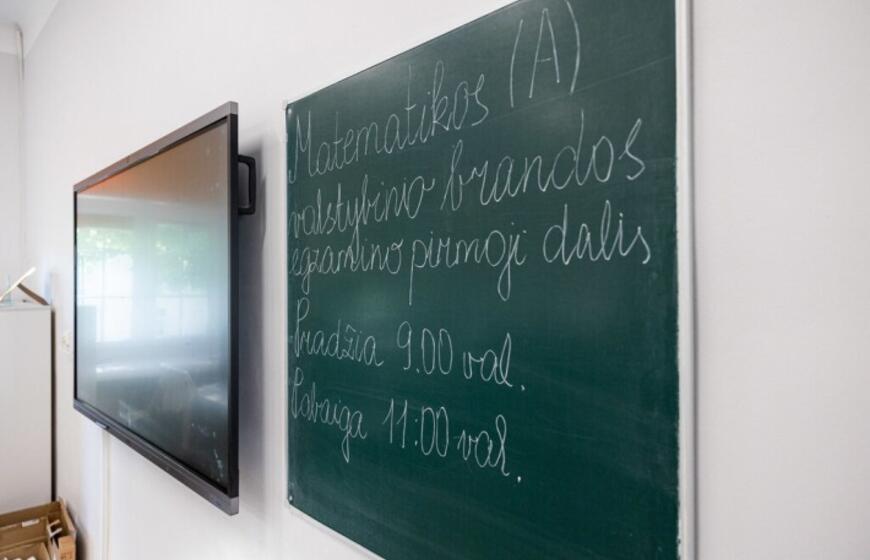 Matematikos (A)
valstybinio brandos
egzamino pirmoji dalis
Pradžia 9.00 val.
Pabaiga 11:00 val.